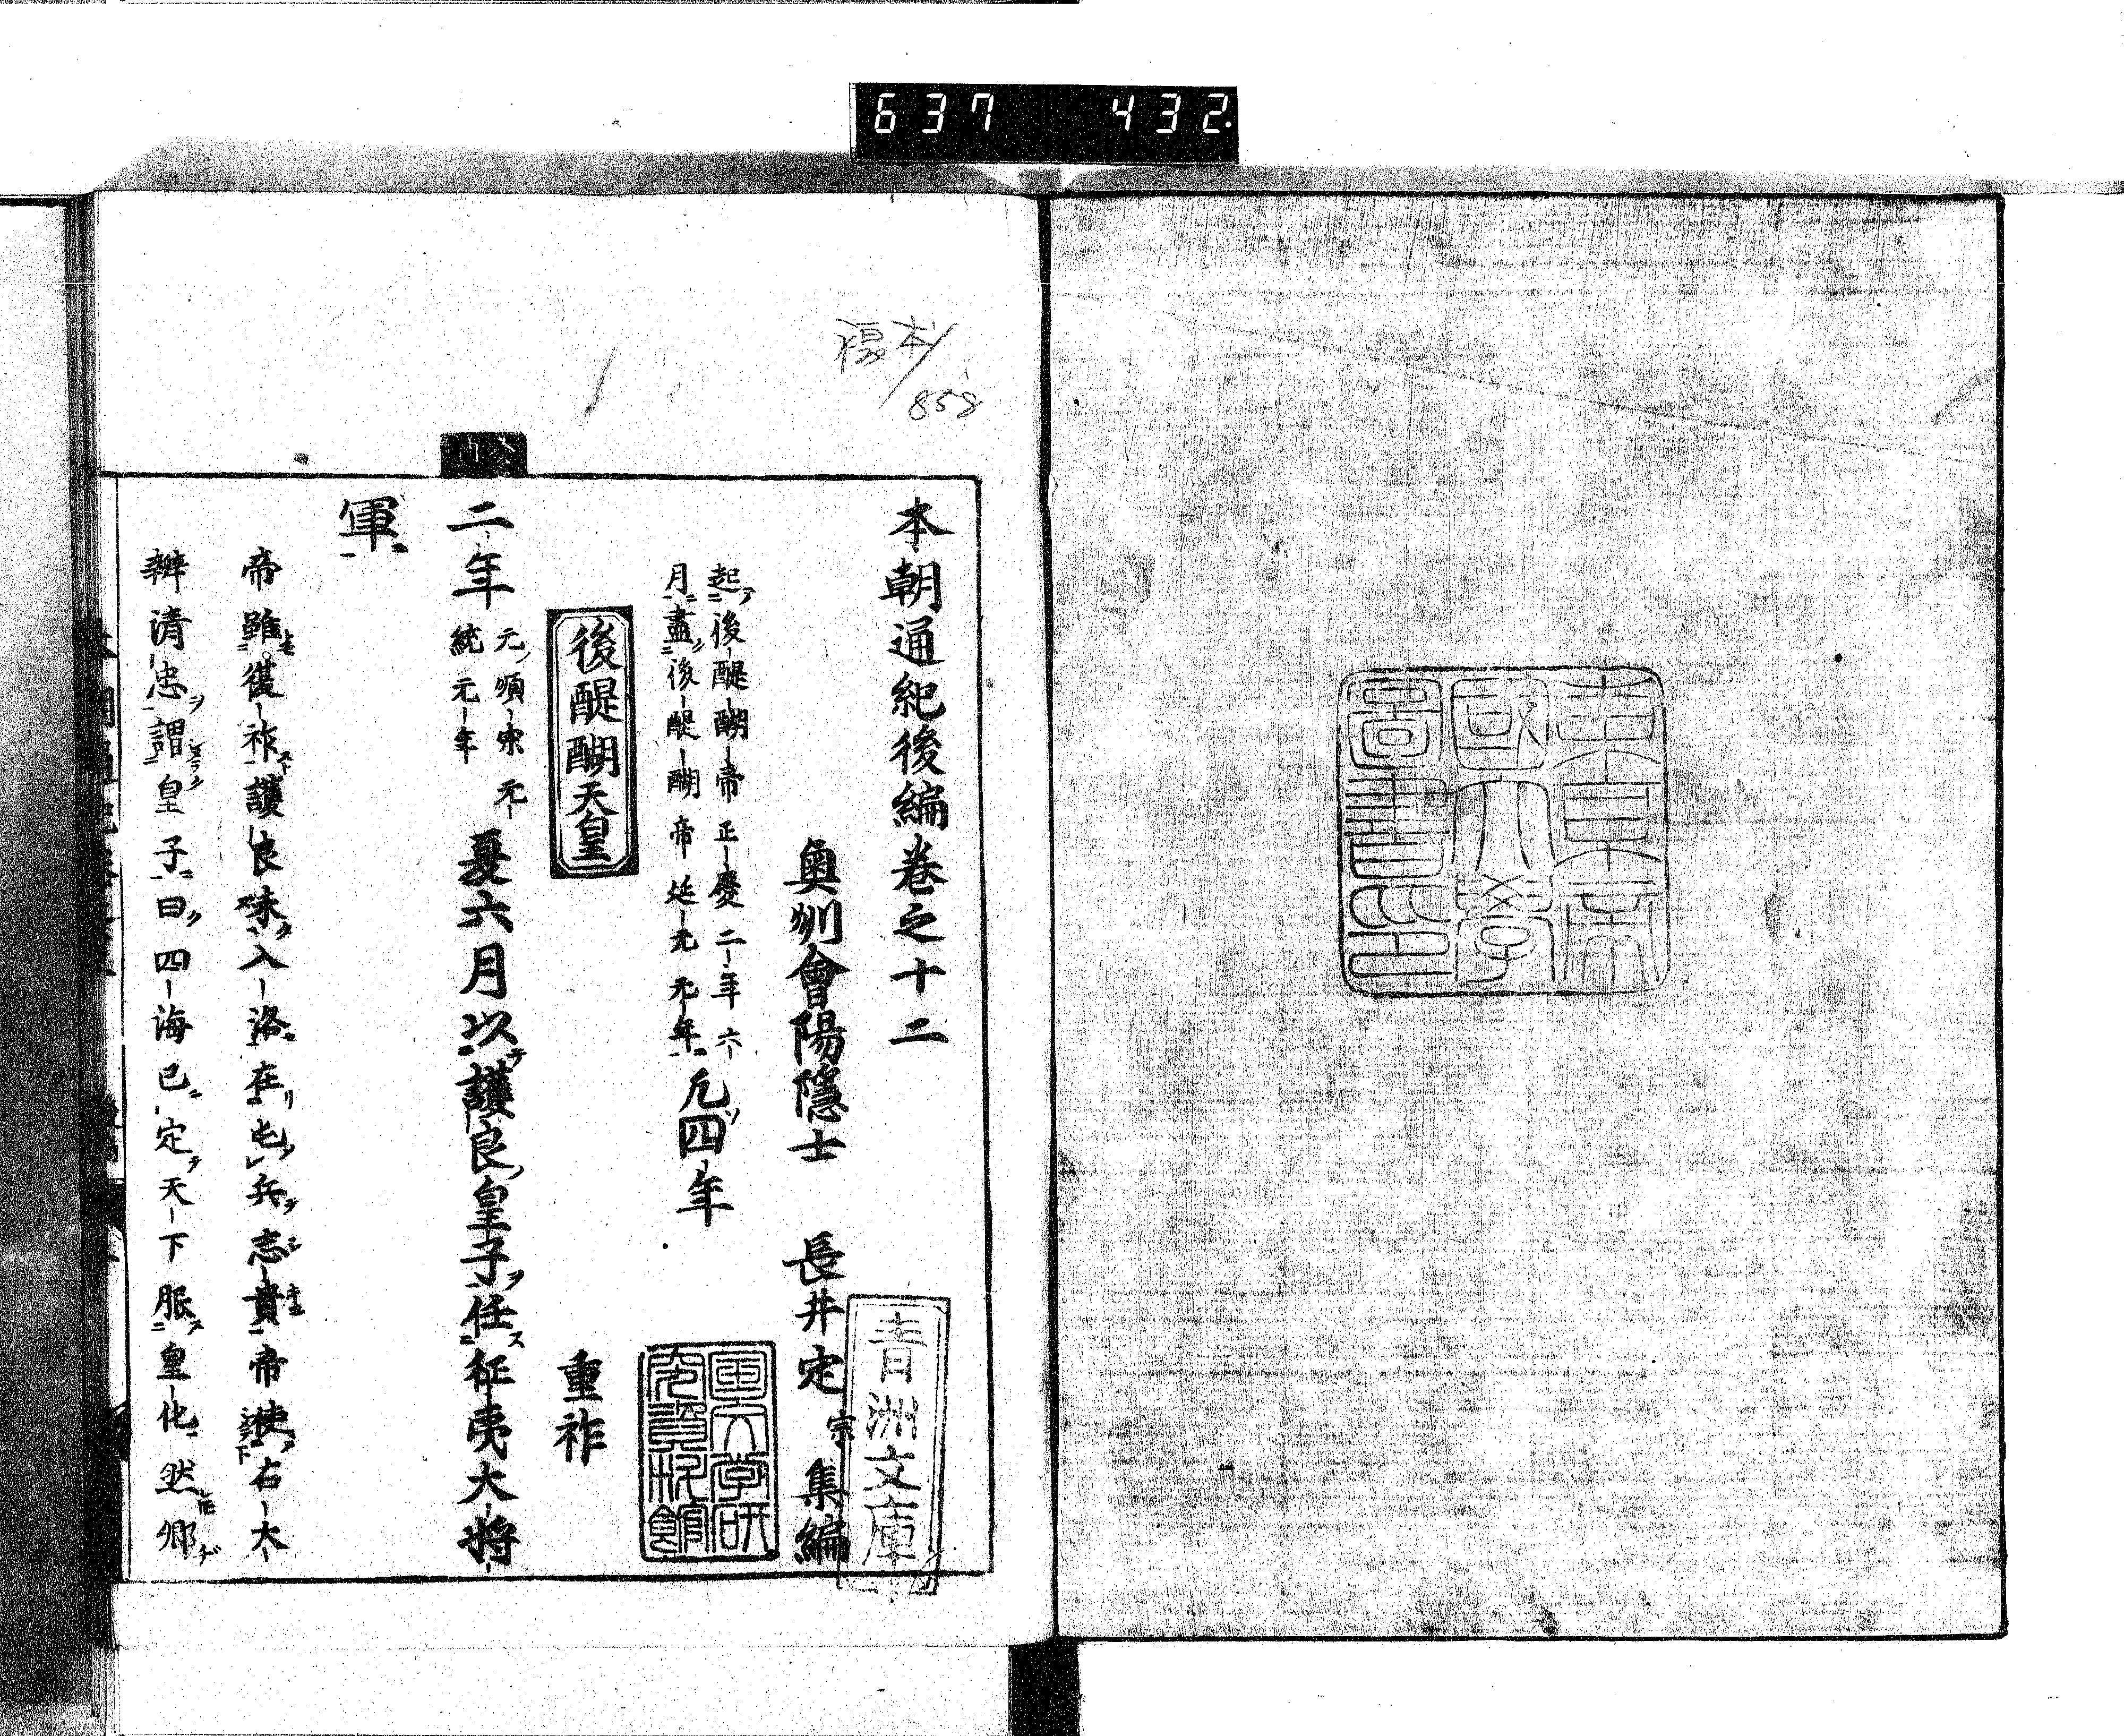 637 432
複本
858
東京帝
國大學
圖書印
本朝通紀後編卷之十二
奥州會陽隱士 長井定宗集編
青洲文庫
起後醍醐帝正慶二年六
月盡後醍醐帝延元元年 凡四年
國文学研
究資料館
後醍醐天皇 重祚
二年 元順宗元
統元年 夏六月以護良皇子任征夷大將
軍
帝雖復祚護良未入洛在屯兵志貴帝使右大
辨清忠謂皇子曰四海已定天下服皇化然鄉